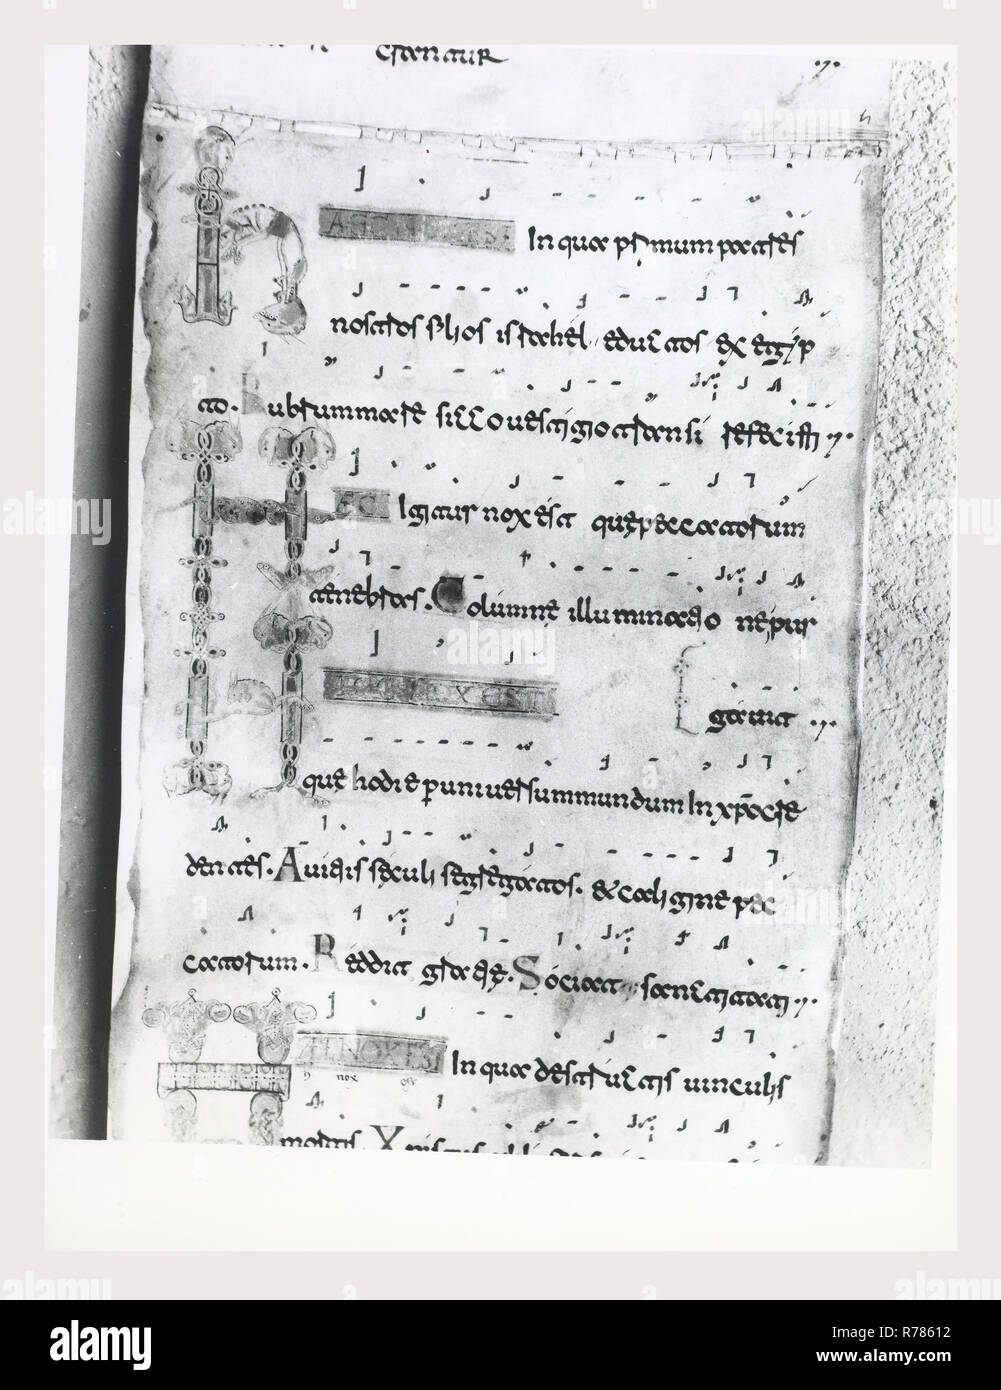 ostendatur
HAEC NOX EST. In qua primum patres
nostros filios israhel eductos ex egyp
to. Rubrum mare sicco vestigio transire fecisti
HAEC Igitur nox est que peccatorum
tenebras. Columne illuminatio ne pur
HAEC NOX EST
gavit
que hodie p universum mundum In xpo cre
dentes. A vitiis seculi segregatos. et caligine pec
catorum. Reddit gratie. Sociat sanctitati
HAEC NOX EST In qua destructis vinculis
mortis. Xpistus
alamy
Image ID: R78612
www.alamy.com